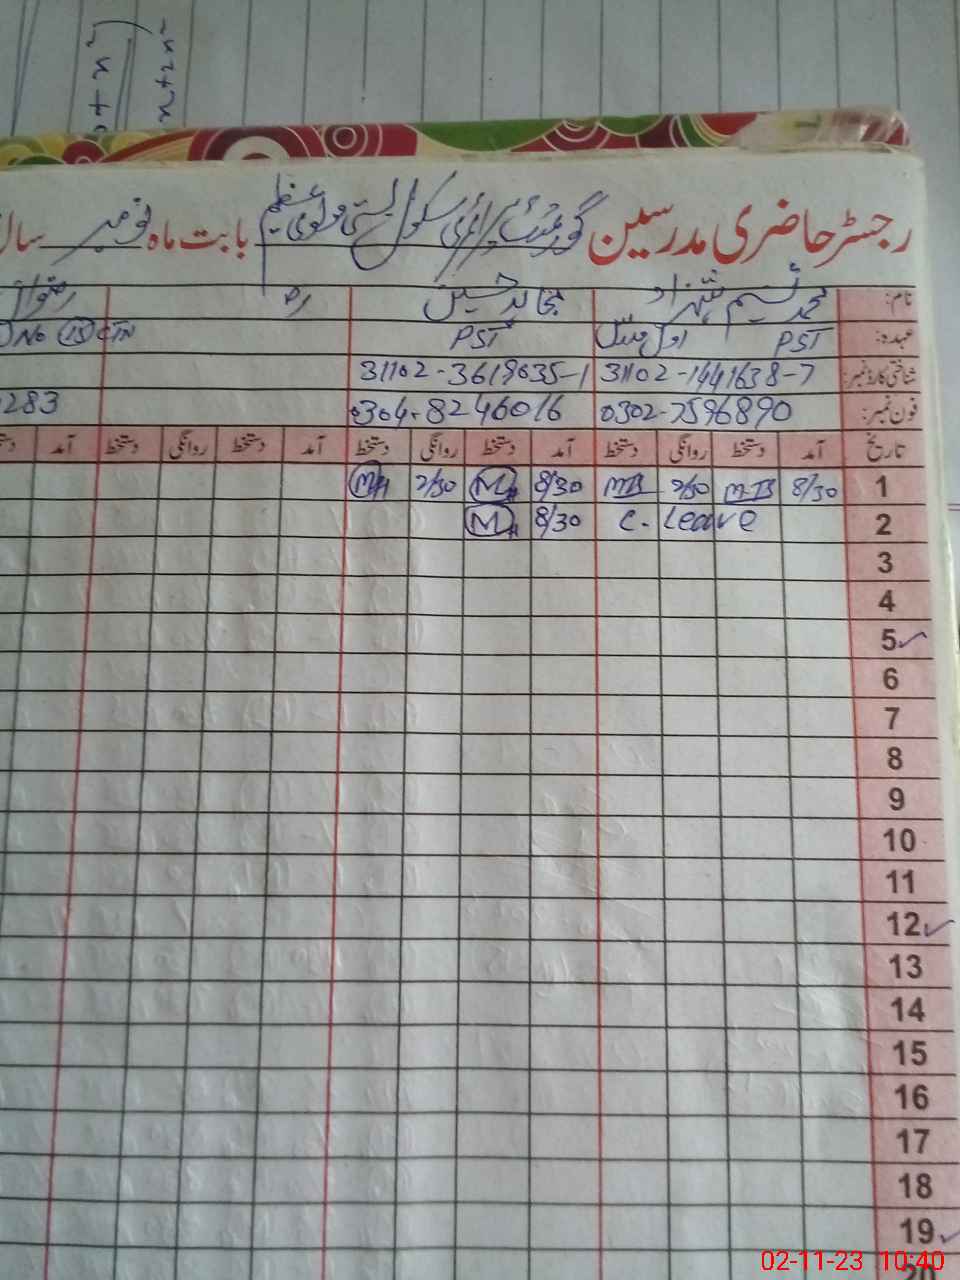 رجسٹر حاضری مدرسین گورنمنٹ پرائمری سکول بستی مولوی عظیم بابت ماہ نومبر سال
نام: محمد نسیم شہزاد مجاہد حسین
عہدہ: PST اول مدرس PST No 15 CTN
شناختی کارڈ نمبر: 31102-1441638-7 31102-3619035-1
فون نمبر: 0302-7596890 0304-8246016 283
تاریخ آمد دستخط روانگی دستخط آمد دستخط روانگی دستخط آمد دستخط روانگی دستخط آمد
1 8/30 MB 2/30 MB 8/30 M 2/30 MH
2 C. Leave 8/30 M
3
4
5
6
7
8
9
10
11
12
13
14
15
16
17
18
19
20
02-11-23 10:40